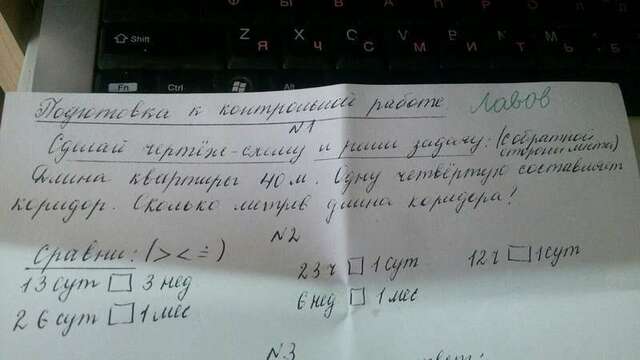 Shift Z Я X Ч C С V М B И N Т M Ь
Fn Ctrl Alt
Подготовка к контрольной работе Лавов
№1
Сделай чертёж-схему и реши задачу: (с обратной
стороны листа)
Длина квартиры 40 м. Одну четвёртую составляет
коридор. Сколько метров длина коридора!
№2
Сравни: (> < =)
13 сут □ 3 нед
23 ч □ 1 сут
12 ч □ 1 сут
26 сут □ 1 мес
6 нед □ 1 мес
№3